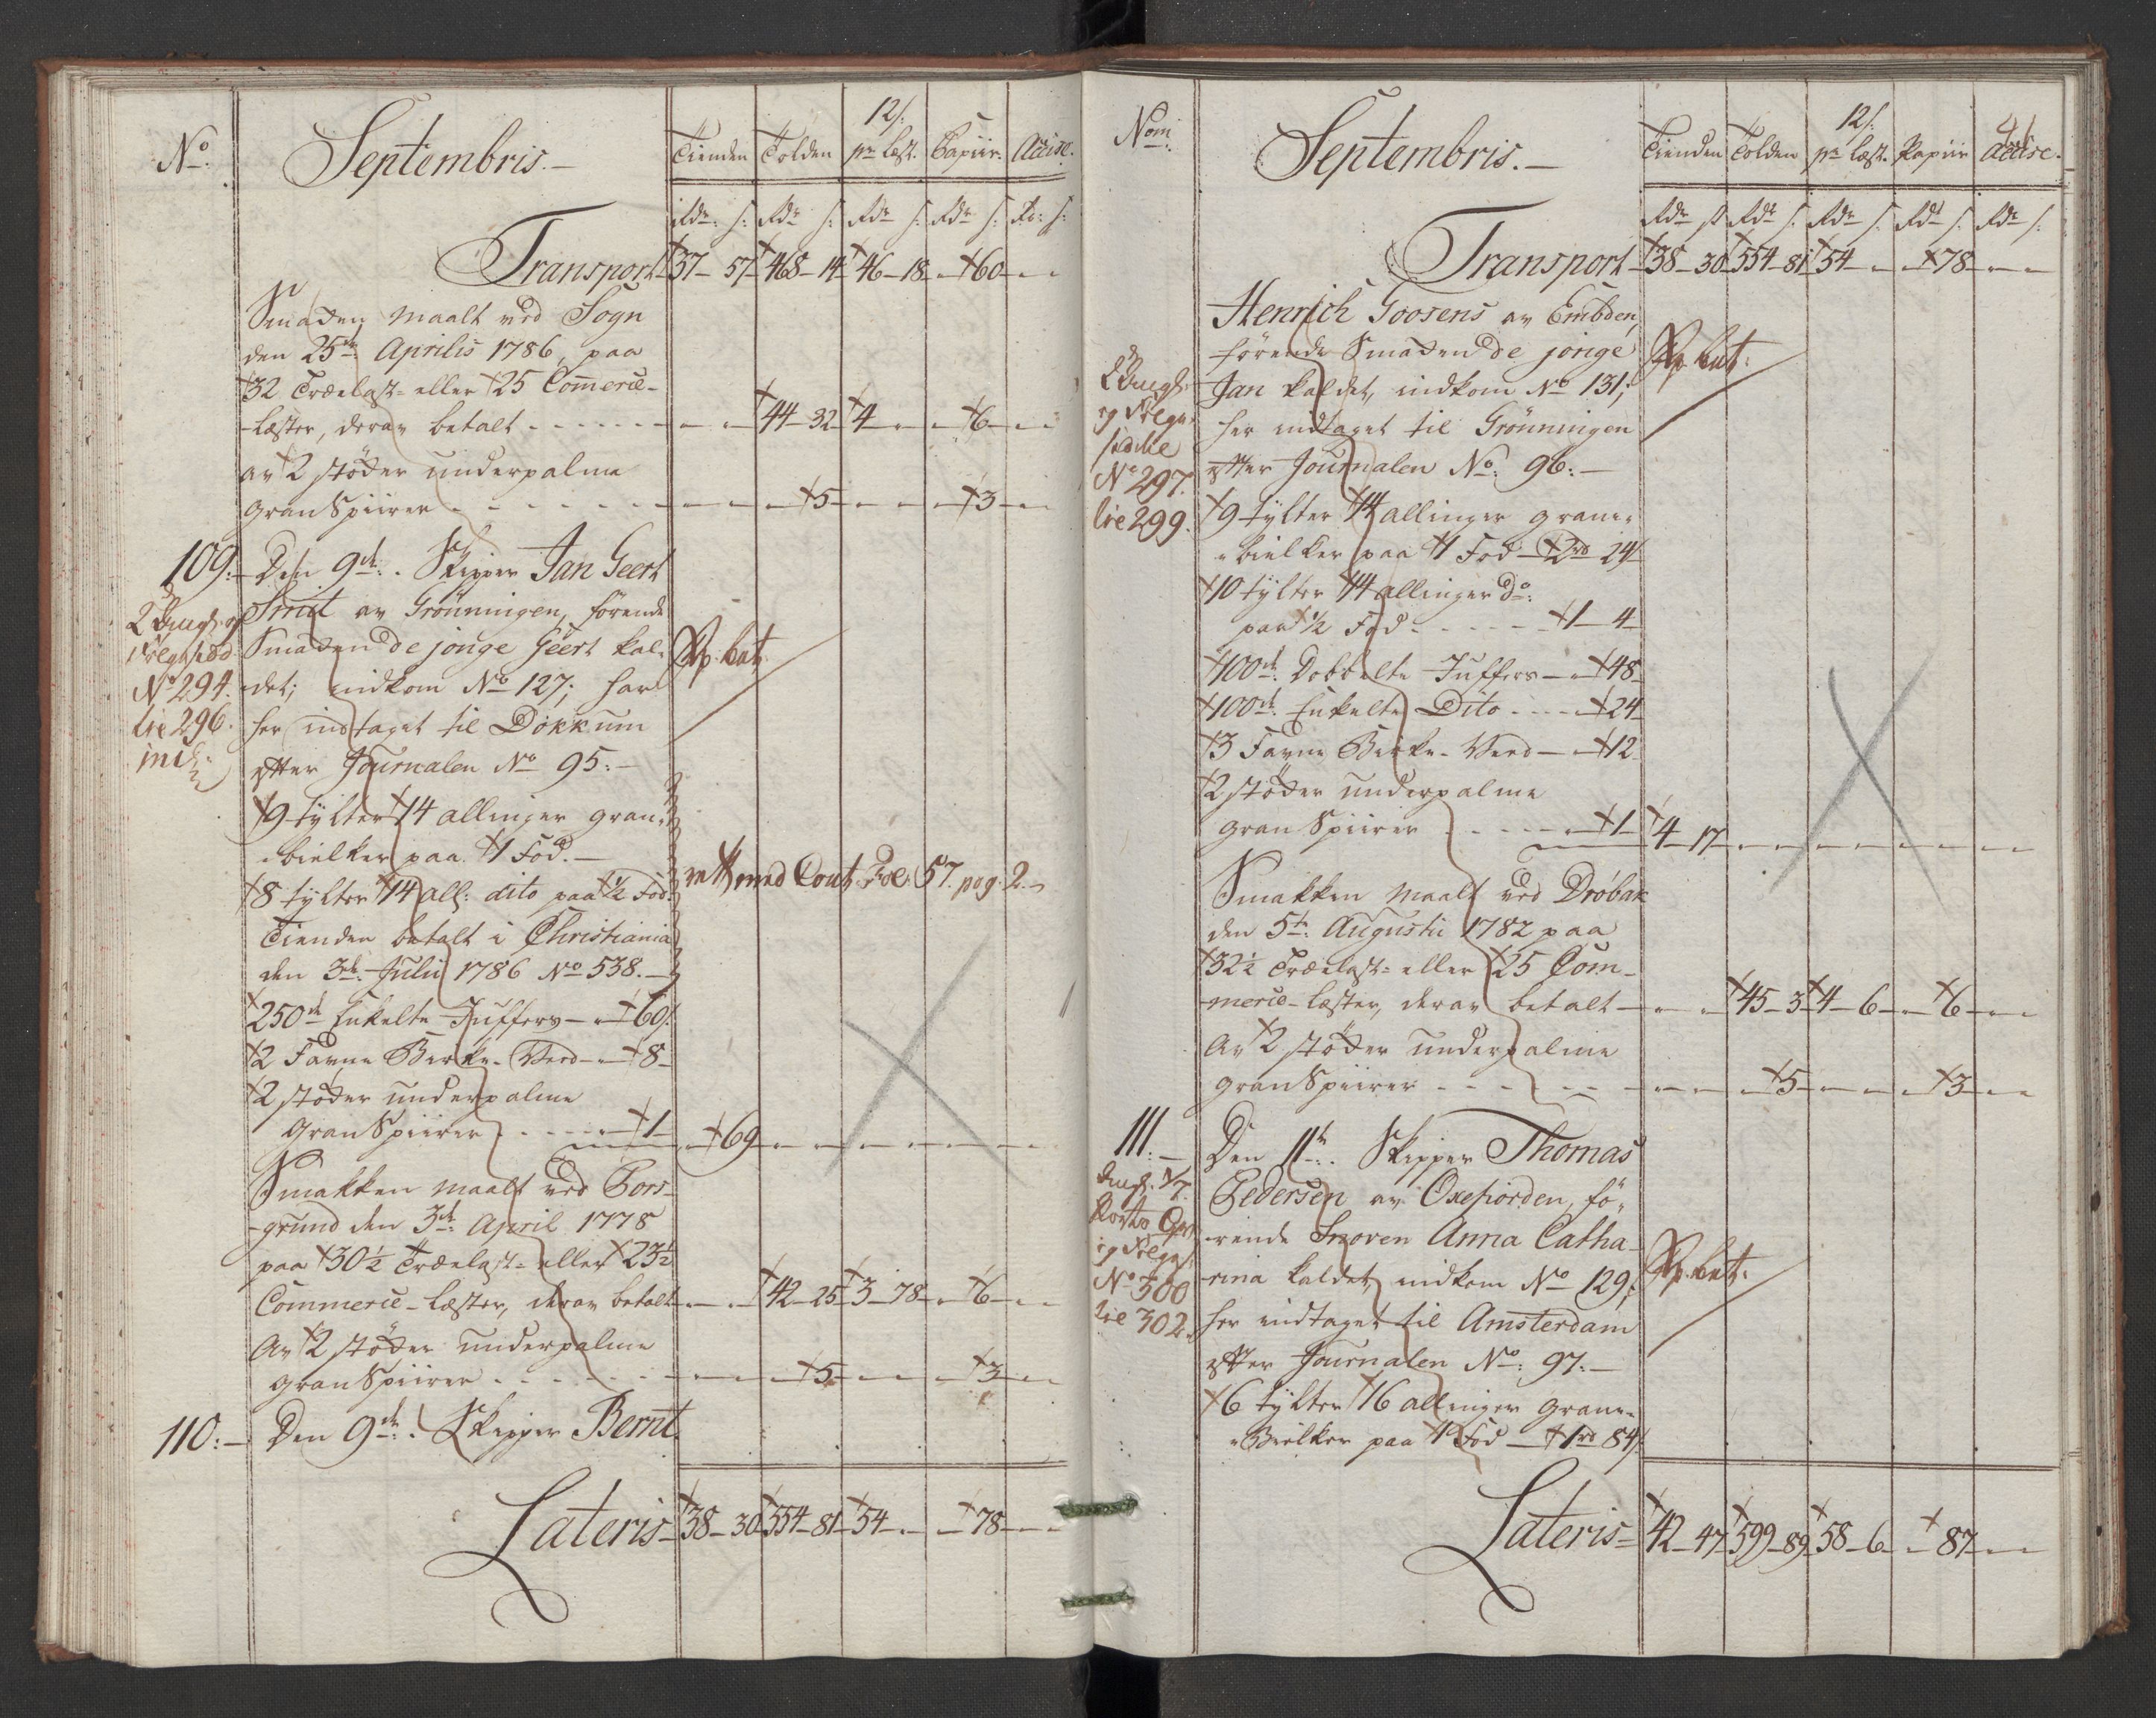 No:
Septembris.
Tienden Tolden 12 s: pr Læst. Papiir. Accise.
Rdr. s: Rdr s: Rdr s: Rdr s: Rr: s:
Transport 37-57 468-14 46-18 - 60 - -
Smaken maalt ved Sogn
den 25de Aprilis 1786, paa
32 Trælast- eller 25 Commerce-
-læster, derav betalt - - 44-32 4 - - 6 - -
av 2 støder underpalme
Gran Spiirer - - - 5 - - - 3 - -
109: Den 9de. Skipper Jan Geert
Smit av Grønningen, førende
Smaken de jonge Geert kal-
det; indkom No 127; har
her indtaget til Dokkum
efter Journalen No 95:
2 Angl. og
No 294.
til 296.
incl:
Pp. bet.
9 tylter 14 allinger gran-
-bielker paa 1 Fod.
8 tylter 14 all: dito paa ½ Fod
rett med Cont. Fol. 57. pag. 2.
Tienden betalt i Christiania
den 3de Julii 1786 No 538.
250de Enkelte Juffers - 60
2 Favne Birke-Veed - 8
2 støder underpalme
Gran Spiirer - 1 - 69 - - - - - -
Smakken maalt ved Pors-
-grund den 3de April 1778
paa 30½ Trælast- eller 23½
Commerce-læster, derav betalt - - 42-25 3-78 - 6 - -
Av 2 støder underpalme
Gran Spiirer - - - 5 - - - 3 - -
110: Den 9de. Skipper Bernt
Lateris 38-30 554-81 54 - - 78 - -
Nom:
Septembris.
Tienden Tolden 12 s: pr Læst. Papiir Accise.
Rdr s Rdr s: Rdr s: Rdr s: Rdr s:
Transport 38-30 554-81 54 - - 78 - -
Henrich Goosens av Embden,
førende Smaken de jonge
Jan kaldet, indkom No 131;
her indtaget til Grønningen
efter Journalen No: 96:
No 297.
til 299.
Pp. bet:
9 tylter 14 allinger grane-
-bielker paa 1 Fod - 2rd 24
10 tylter 14 allinger Do:
paa ½ Fod - 1-4
100de Dobbelte Juffers - 48
100de Enkelte Dito - 24
3 Favne Birke-Veed - 12
2 støder underpalme
Gran Spiirer - 1 4-17 - - - - - - -
Smakken maalt ved Drøbak
den 5te Augustii 1782 paa
32½ Trælast- eller 25 Com-
-merce-læster, derav betalt - - 45-3 4-6 - 6 - -
Av 2 støder underpalme
Gran Spiirer - - - 5 - - - 3 - -
111: Den 11te. Skipper Thomas
Pedersen av Oxefiorden, fø-
-rende Snoven Anna Catha-
-rina kaldet, indkom No 129;
her indtaget til Amsterdam
efter Journalen No: 97.
No 300
til 302.
Pp. bet.
6 tylter 16 allinger grane-
-Bielker paa 1 Fod - 1rd 84
Lateris 42-47 599-89 58-6 - 87 - -